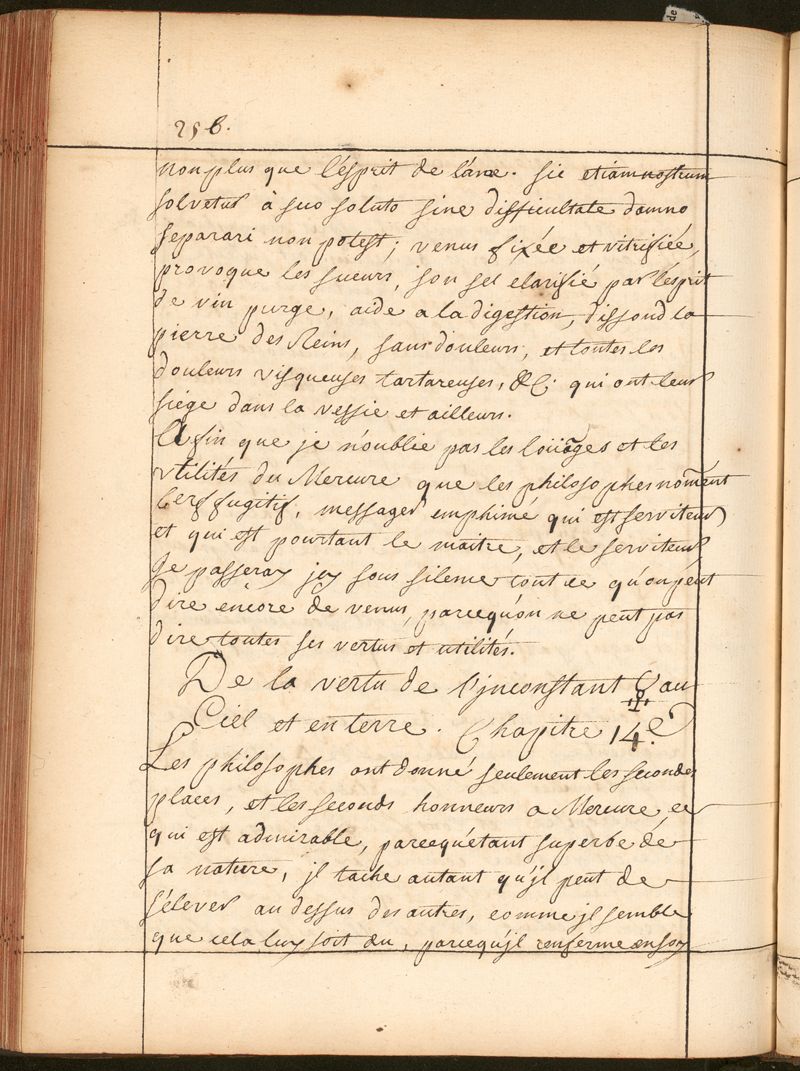 256.
non plus que l'ésprit de l'áne. Sic etiam nostrum
solvetur à suo soluto sine difficultate damno
separari non potest; venus fixée et vitrifiée,
provoque les sueurs, son sel clarifié par l'esprit
de vin purge, aide a la digestion, dissoud la
pierre des Reins, sans douleurs, et toutes les
douleurs visqueuses tartareuses, &C. qui ont leur
siége dans la vessie et ailleurs.
Afin que je n'oublie pas les loüāges et les
vtilités du Mercure que les philosophes nom̄ent
Cerf fugitif, messager emphimé qui est serviteur
et qui est pourtant le maitre, et le serviteur
Je passeray jcy sous silence tout ce qu'on peut
dire encore de venus, parcequ'on ne peut pas
dire toutes ses vertus et utilités.
De la vertu de l'jnconstant ☿ au
Ciel et en terre. Chapitre 14.e
Les philosophes ont donné seulement les secondes
places, et les seconds honneurs a Mercure, ce
qui est admirable, parcequ'étant superbe de
sa nature, jl tache autant qu'jl peut de
s'élever au dessus des autres, comme jl semble
que cela luy soit du, parcequ'jl renferme en soy